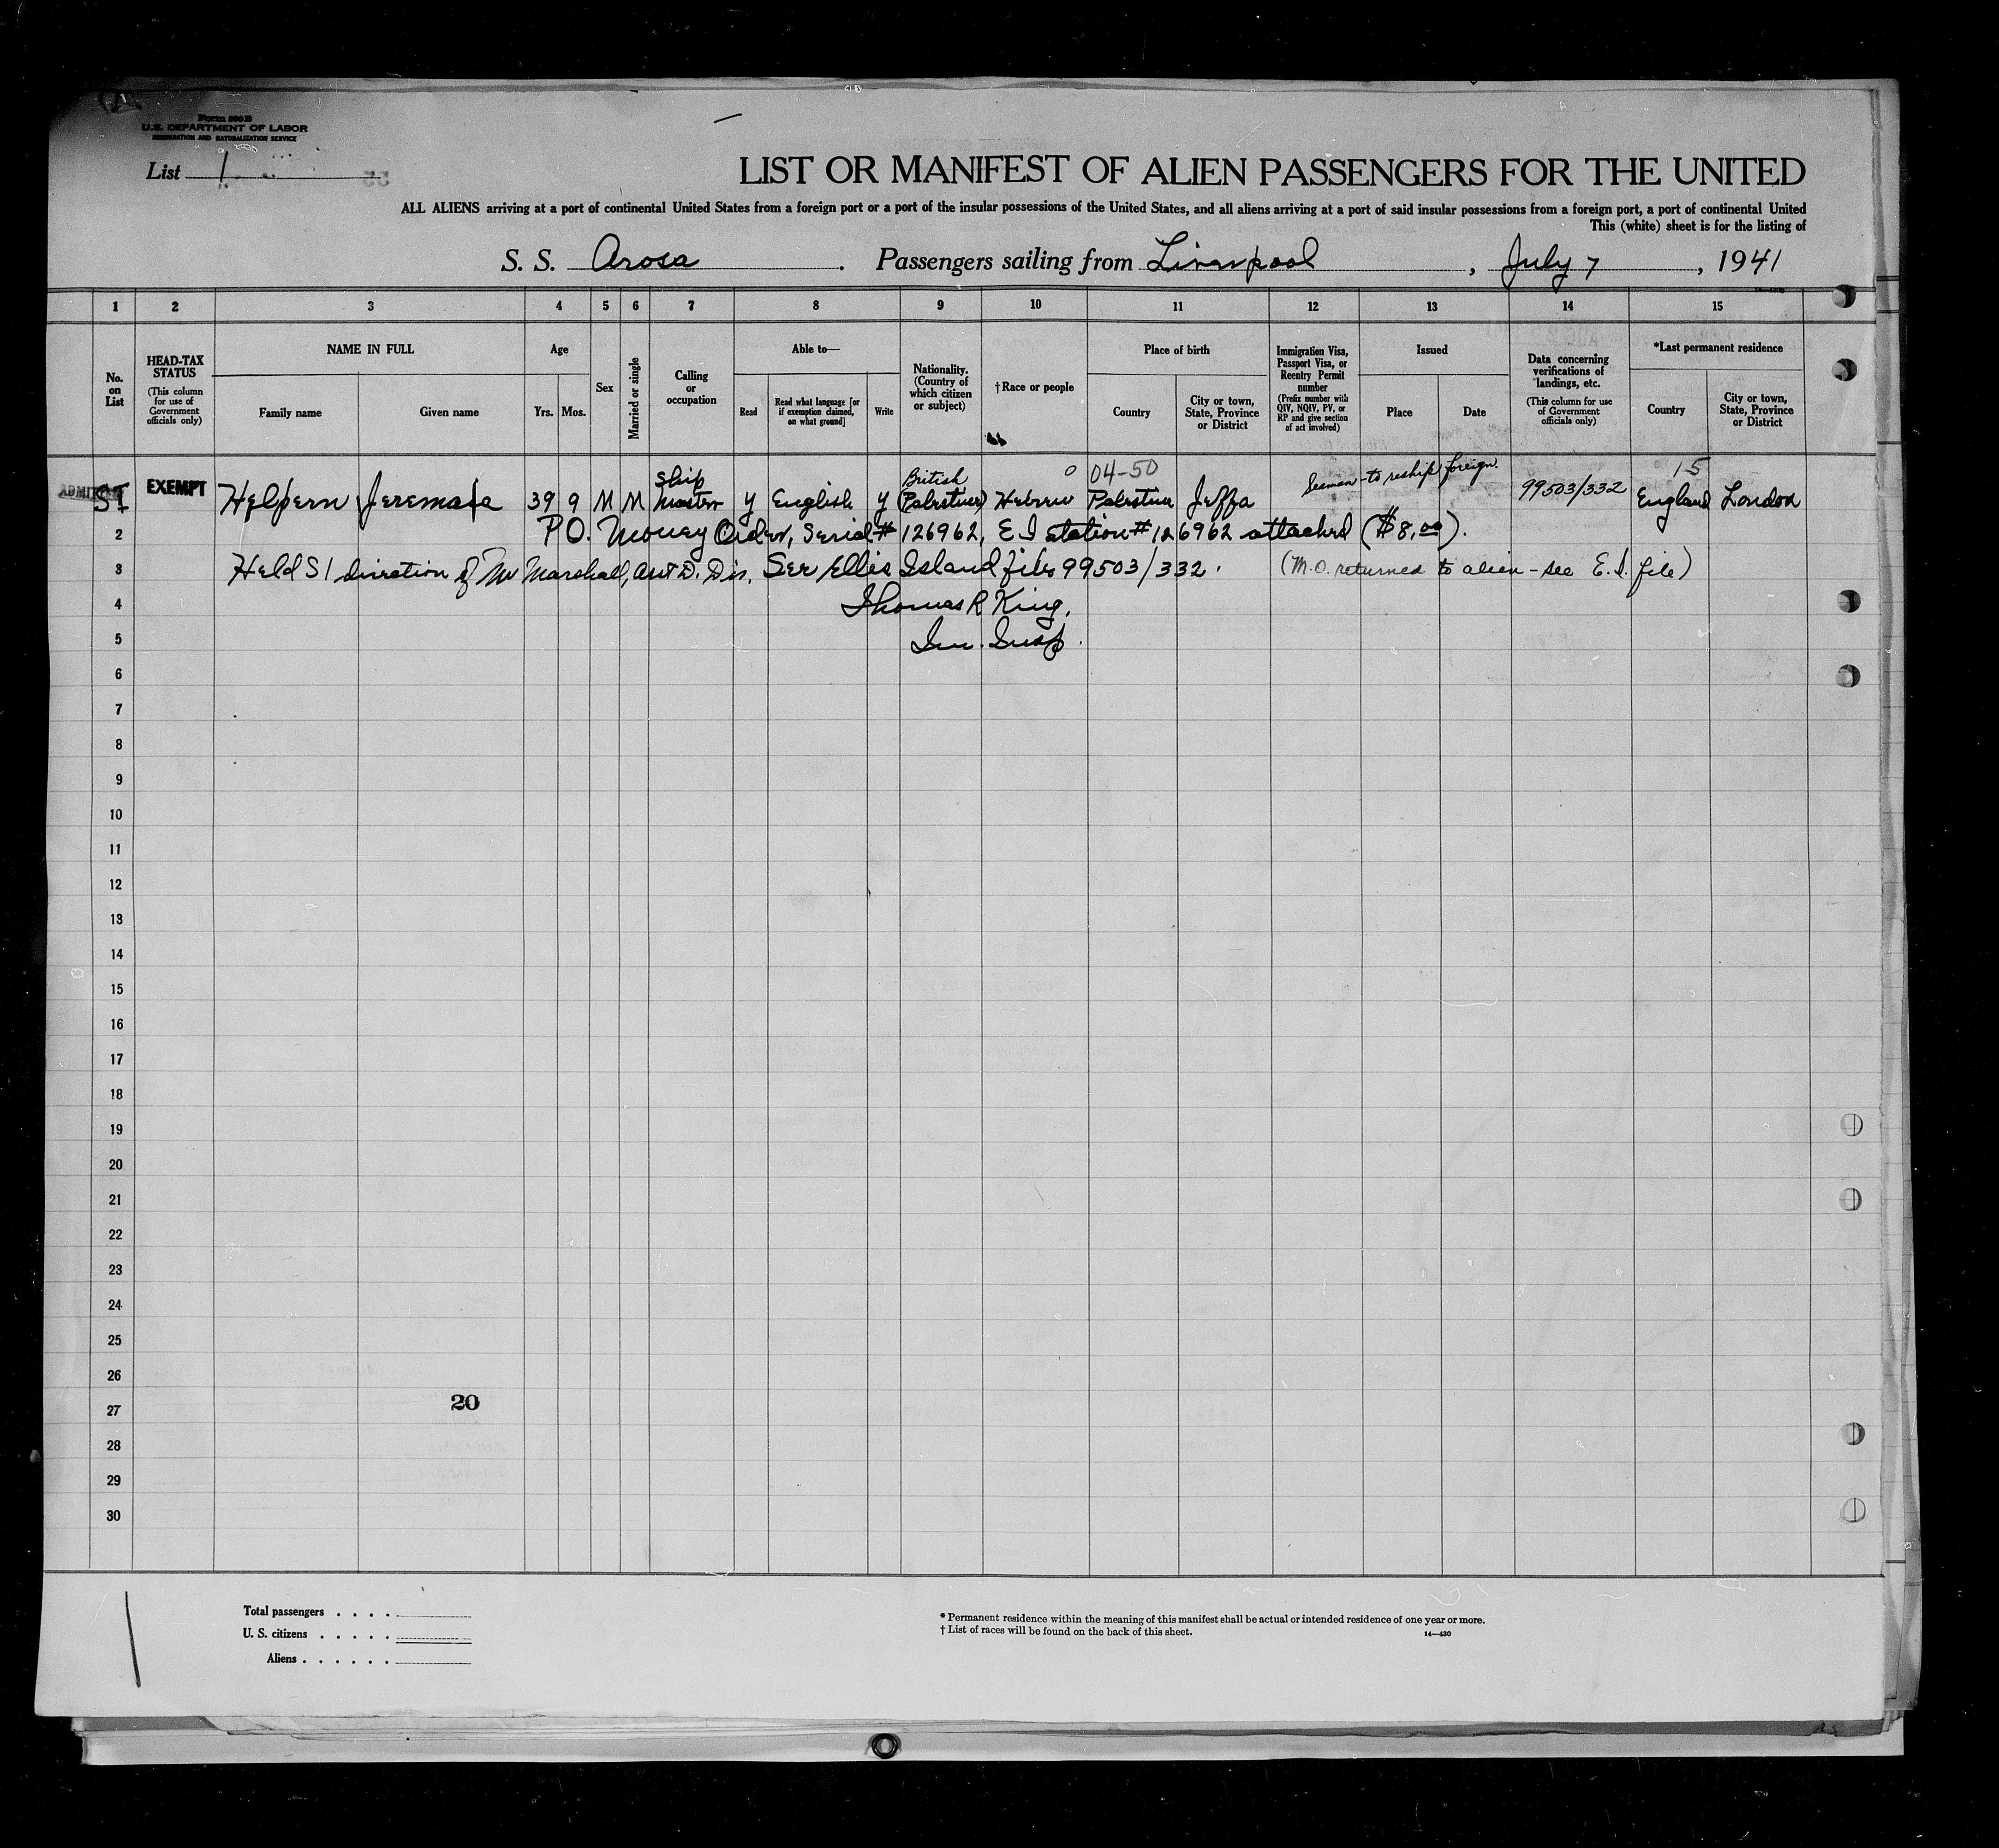 Form 500 B
U.S. DEPARTMENT OF LABOR
IMMIGRATION AND NATURALIZATION SERVICE
List 1
LIST OR MANIFEST OF ALIEN PASSENGERS FOR THE UNITED
ALL ALIENS arriving at a port of continental United States from a foreign port or a port of the insular possessions of the United States, and all aliens arriving at a port of said insular possessions from a foreign port, a port of continental United
This (white) sheet is for the listing of
S. S. Arosa. Passengers sailing from Liverpool, July 7, 1941
1 2 3 4 5 6 7 8 9 10 11 12 13 14 15
No. on List
HEAD-TAX STATUS (This column for use of Government officials only)
NAME IN FULL
Family name Given name
Age
Yrs. Mos.
Sex
Married or single
Calling or occupation
Able to—
Read
Read what language [or if exemption claimed, on what ground]
Write
Nationality. (Country of which citizen or subject)
†Race or people
Place of birth
Country
City or town, State, Province or District
Immigration Visa, Passport Visa, or Reentry Permit number (Prefix number with QIV, NQIV, PV, or RP and give section of act involved)
Issued
Place Date
Data concerning verifications of landings, etc. (This column for use of Government officials only)
*Last permanent residence
Country
City or town, State, Province or District
ADMITTED SI EXEMPT Helpern Jeremaia 39 9 M M Ship Master y English y British (Palestine) Hebrew 04-50 Palestine Jeffa Seaman-to reship foreign. 99503/332 15 England London
2 P.O. Money Order, Serial # 126962, E I station # 126962 attached ($8.00).
3 Held SI direction of Mr Marshall, Ast D. Dir. See Ellis Island file 99503/332. (M.O. returned to alien - see E.I. file)
4 Thomas R King,
5 Im. Insp.
6
7
8
9
10
11
12
13
14
15
16
17
18
19
20
21
22
23
24
25
26
27 20
28
29
30
Total passengers . . . .
U. S. citizens . . . . .
Aliens . . . . . .
* Permanent residence within the meaning of this manifest shall be actual or intended residence of one year or more.
† List of races will be found on the back of this sheet.
14—430